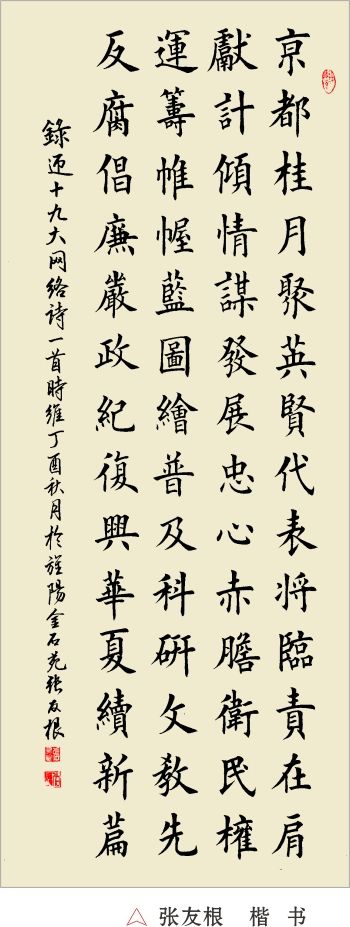 京都桂月聚英賢代表将臨責在肩
獻計傾情謀發展忠心赤膽衛民權
運籌帷幄藍圖繪普及科研文教先
反腐倡廉嚴政紀復興華夏續新篇
錄迎十九大网絡詩一首時維丁酉秋月於旌陽金石苑張友根
张友根 楷 书